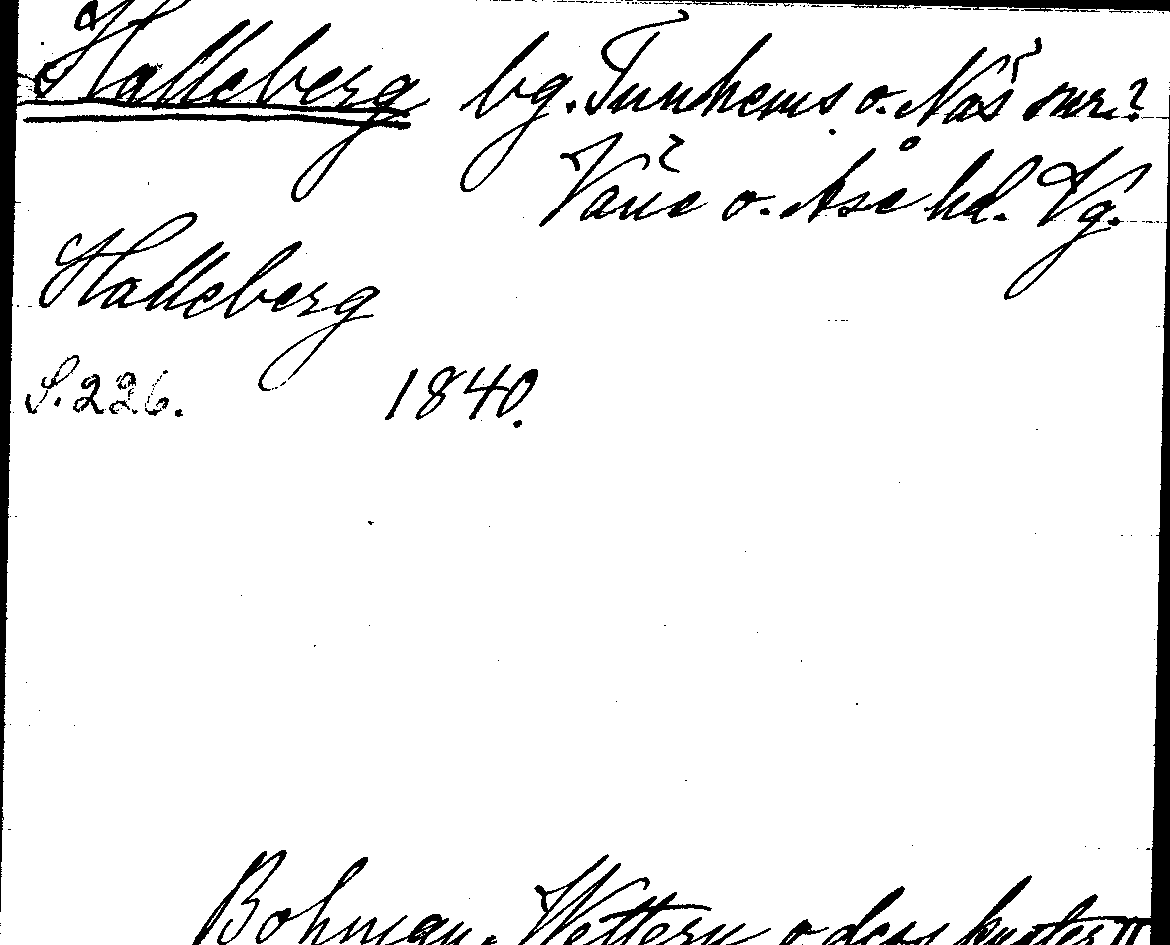 Halleberg bg. Tunhems o. Näs snr?
Väne o. Åse hd. Vg.
Halleberg
S. 226. 1840.
Bohman, Wettern o. dess kuster II